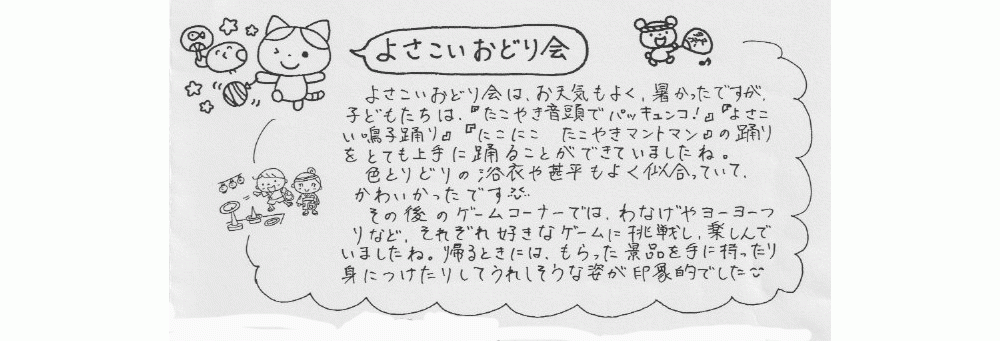 よさこいおどり会
よさこいおどり会は、お天気もよく、暑かったですが、
子どもたちは、『たこやき音頭でパッキュンコ！』『よさこ
い鳴子踊り』『にこにこ たこやきマントマン』の踊り
をとても上手に踊ることができていましたね。
色とりどりの浴衣や甚平もよく似合っていて、
かわいかったです
その後のゲームコーナーでは、わなげやヨーヨーつ
りなど、それぞれ好きなゲームに挑戦し、楽しんで
いましたね。帰るときには、もらった景品を手に持ったり
身につけたりしてうれしそうな姿が印象的でした